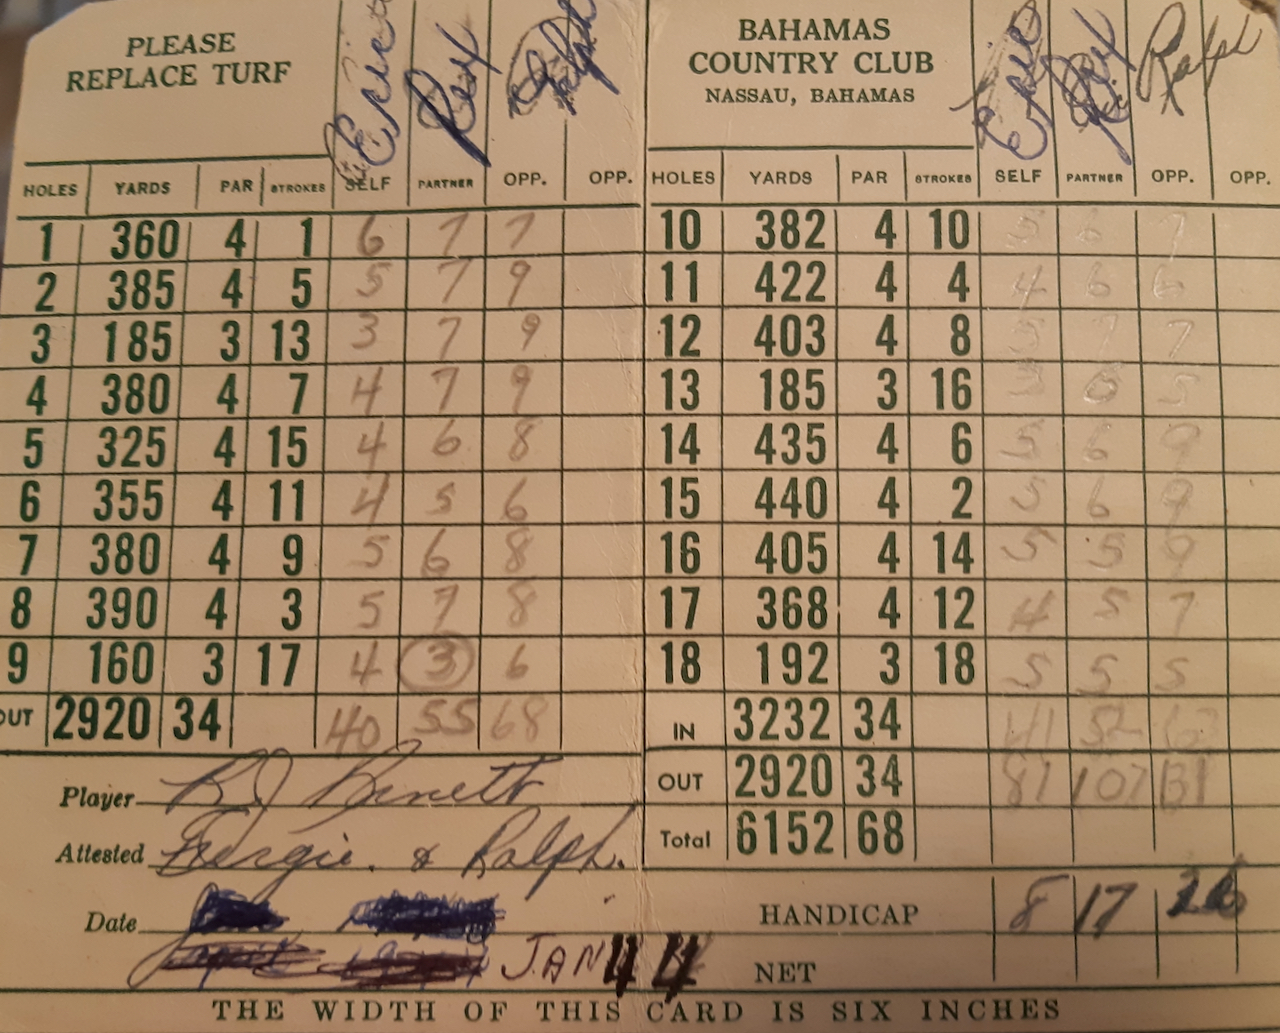 PLEASE
REPLACE TURF
Ernie Rex Ralph
HOLES YARDS PAR STROKES SELF PARTNER OPP. OPP.
1 360 4 1 6 7 7
2 385 4 5 5 7 9
3 185 3 13 3 7 9
4 380 4 7 4 7 9
5 325 4 15 4 6 8
6 355 4 11 4 5 6
7 380 4 9 5 6 8
8 390 4 3 5 7 8
9 160 3 17 4 3 6
OUT 2920 34 40 55 68
Player
Attested & Ralph.
Date
JAN 44
BAHAMAS
COUNTRY CLUB
NASSAU, BAHAMAS
Ernie Rex Ralph
HOLES YARDS PAR STROKES SELF PARTNER OPP. OPP.
10 382 4 10 5 6 7
11 422 4 4 4 6 6
12 403 4 8 5 7 7
13 185 3 16 5
14 435 4 6 5 6 9
15 440 4 2 5 6 9
16 405 4 14 5 5 9
17 368 4 12 4 5 7
18 192 3 18 5 5 5
IN 3232 34 41 52
OUT 2920 34 81 107 131
Total 6152 68
HANDICAP 8 17 26
NET
THE WIDTH OF THIS CARD IS SIX INCHES